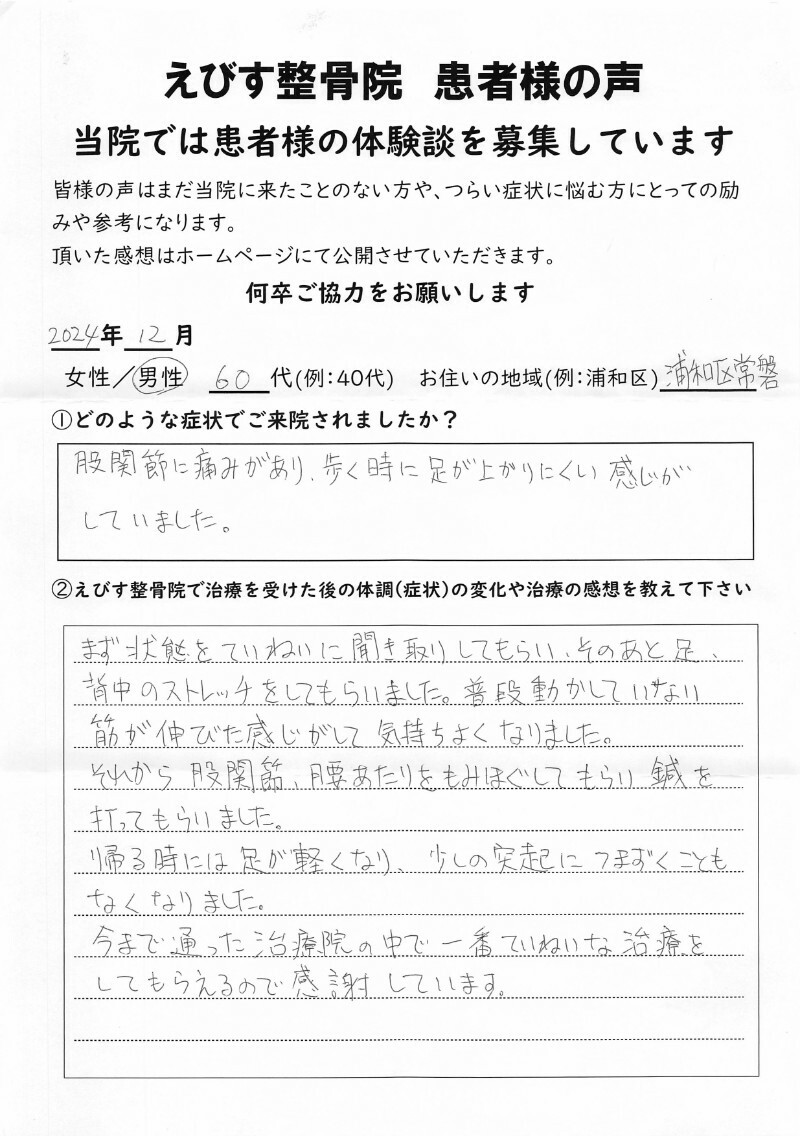 えびす整骨院 患者様の声
当院では患者様の体験談を募集しています
皆様の声はまだ当院に来たことのない方や、つらい症状に悩む方にとっての励
みや参考になります。
頂いた感想はホームページにて公開させていただきます。
何卒ご協力をお願いします
2024年 12月
女性／男性 60代(例：40代) お住いの地域(例：浦和区)浦和区常磐
①どのような症状でご来院されましたか？
股関節に痛みがあり、歩く時に足が上がりにくい感じが
していました。
②えびす整骨院で治療を受けた後の体調(症状)の変化や治療の感想を教えて下さい
まず状態をていねいに聞き取りしてもらい、そのあと足、
背中のストレッチをしてもらいました。普段動かしていない
筋が伸びた感じがして気持ちよくなりました。
それから股関節、腰あたりをもみほぐしてもらい鍼を
打ってもらいました。
帰る時には足が軽くなり、少しの突起につまずくことも
なくなりました。
今まで通った治療院の中で一番ていねいな治療を
してもらえるので感謝しています。